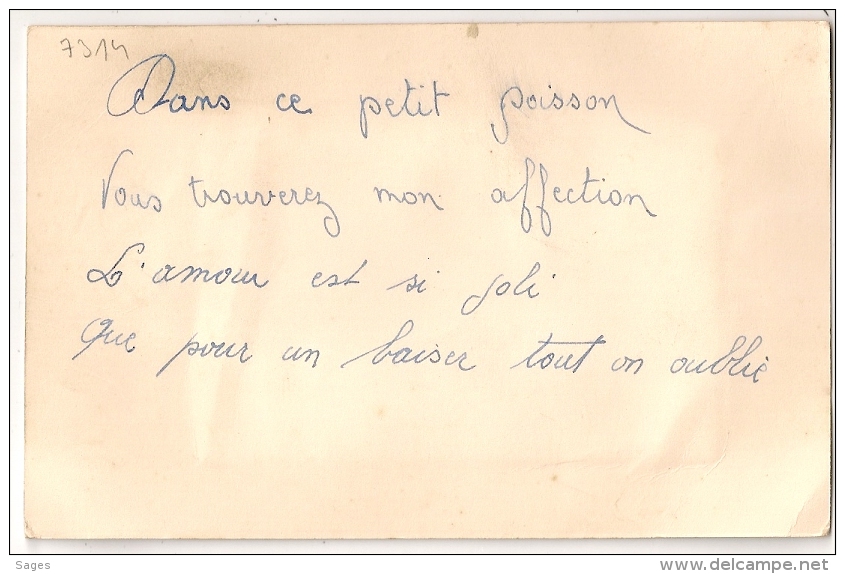 7314
Dans ce petit poisson
Vous trouverez mon affection
L'amour est si joli
Que pour un baiser tout on oublie
Sages
www.delcampe.net